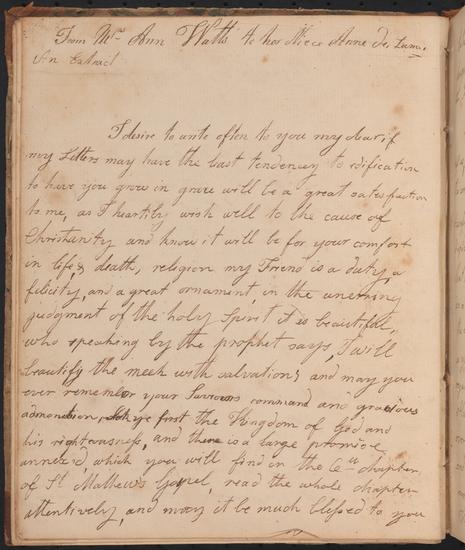 From Mrs Ann Watts to her Niece Anne de Lam.
An Extract
I desire to write often to you my dear if
my Letters may have the least tendency to edification
to have you grow in grace will be a great satesfaction
to me, as I heartily wish well to the cause of
Christianity and know it will be for your comfort
in life, & death, religion my Friend is a duty, a
felicity, and a great ornament, in the unerring
judgment of the holy Spirit it is beautiful,
who speaking by the prophet says, I will
beautify the meek with salvation; and may you
ever remember your Saviours command and gracious
admonition, Seek ye first the Kingdom of God and
his righteousness, and there is a large promise
annex'd, which you will find in the 6th chapter
of St Mathew's Gospel, read the whole chapter
attentively, and may it be much blessed to you